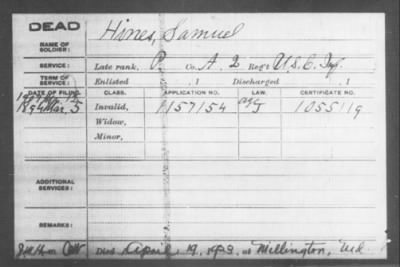 DEAD
NAME OF SOLDIER:
Hines, Samuel
SERVICE: Late rank, P Co. A. 2 Reg't U.S.C. Inf.
TERM OF SERVICE: Enlisted , 1 Discharged , 1
DATE OF FILING. CLASS. APPLICATION NO. LAW. CERTIFICATE NO.
1894 Mar. 5 Invalid, 1157154 1055119
Widow,
Minor,
ADDITIONAL SERVICES:
REMARKS:
Died April 19, at Millington, Md.